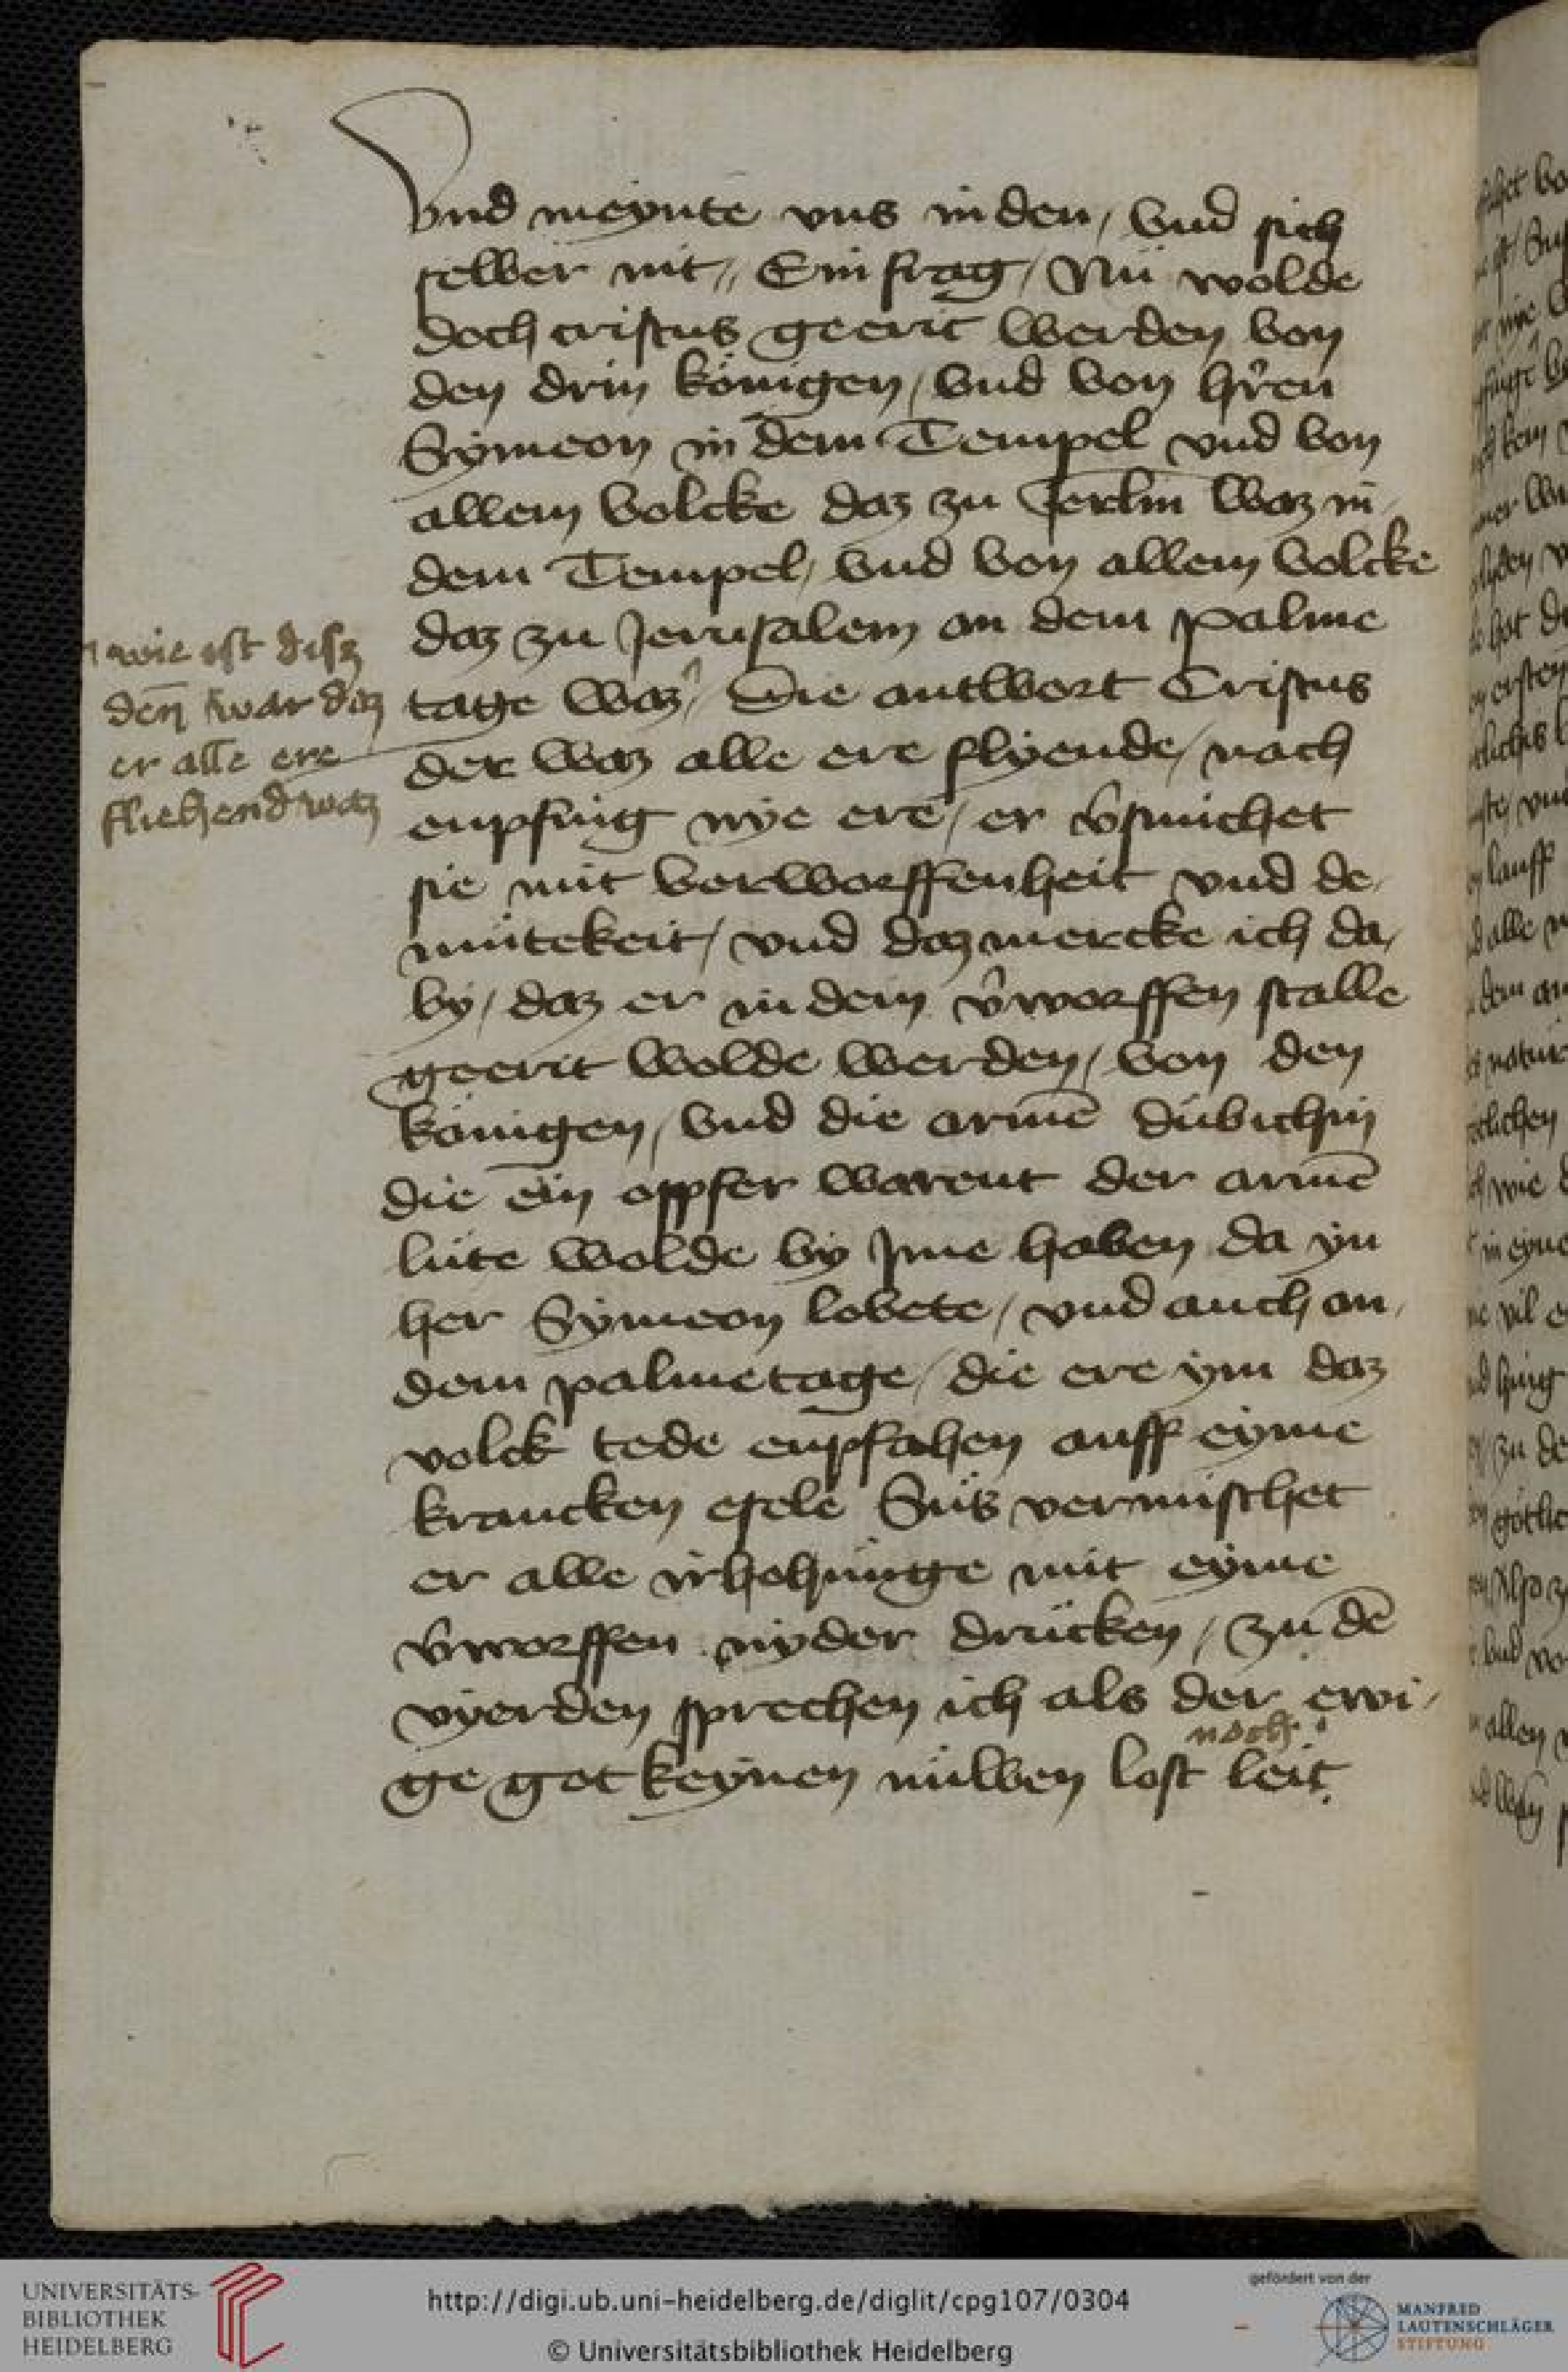 vnd meynte vns in den / vnd sich
selber nit // Ein frag / Nü wolde
doch cristus geerit werden von
den drin königen / vnd von hr̄en
Symeon in dem Tempel vnd von
allem volcke daz zu Jerlm̄ waz in
dem Tempel / vnd von allem volcke
daz zu Jerusalem an dem palme
tage waz / Die antwort Cristus
der waz alle ere flyende / nach
enpfing nye ere / er v̄smichet
sie mit verworffenheit vnd de
mütekeit / vnd daz mercke ich da /
by / daz er in dem v̄worffen stalle
geerit wolde werden / von den
königen / vnd die armē dübichin
die ein oppfer warent der armē
lüte wolde by Jme haben da yn
her Symeon lobete / vnd auch an /
dem palmetage / die ere ym daz
volck tede enpfahen auff eyme
krancken esele Süs vermischet
er alle v̄rhohunge mit eyme
v̄worffen nyder drücken / zu dē
vyerden sprechen ich als der ewi /
noch
ge got keynen nüwen lost leit
wie ist disz
den̄ war daz
er alle ere
fliehend waz
UNIVERSITÄTS-
BIBLIOTHEK
HEIDELBERG
http://digi.ub.uni-heidelberg.de/diglit/cpg107/0304
© Universitätsbibliothek Heidelberg
gefördert von der
MANFRED
LAUTENSCHLÄGER
STIFTUNG